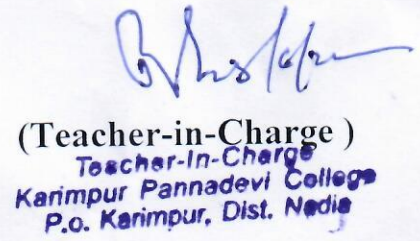 (Teacher-in-Charge )
Teacher-In-Charge
Karimpur Pannadevi College
P.o. Karimpur, Dist. Nadia